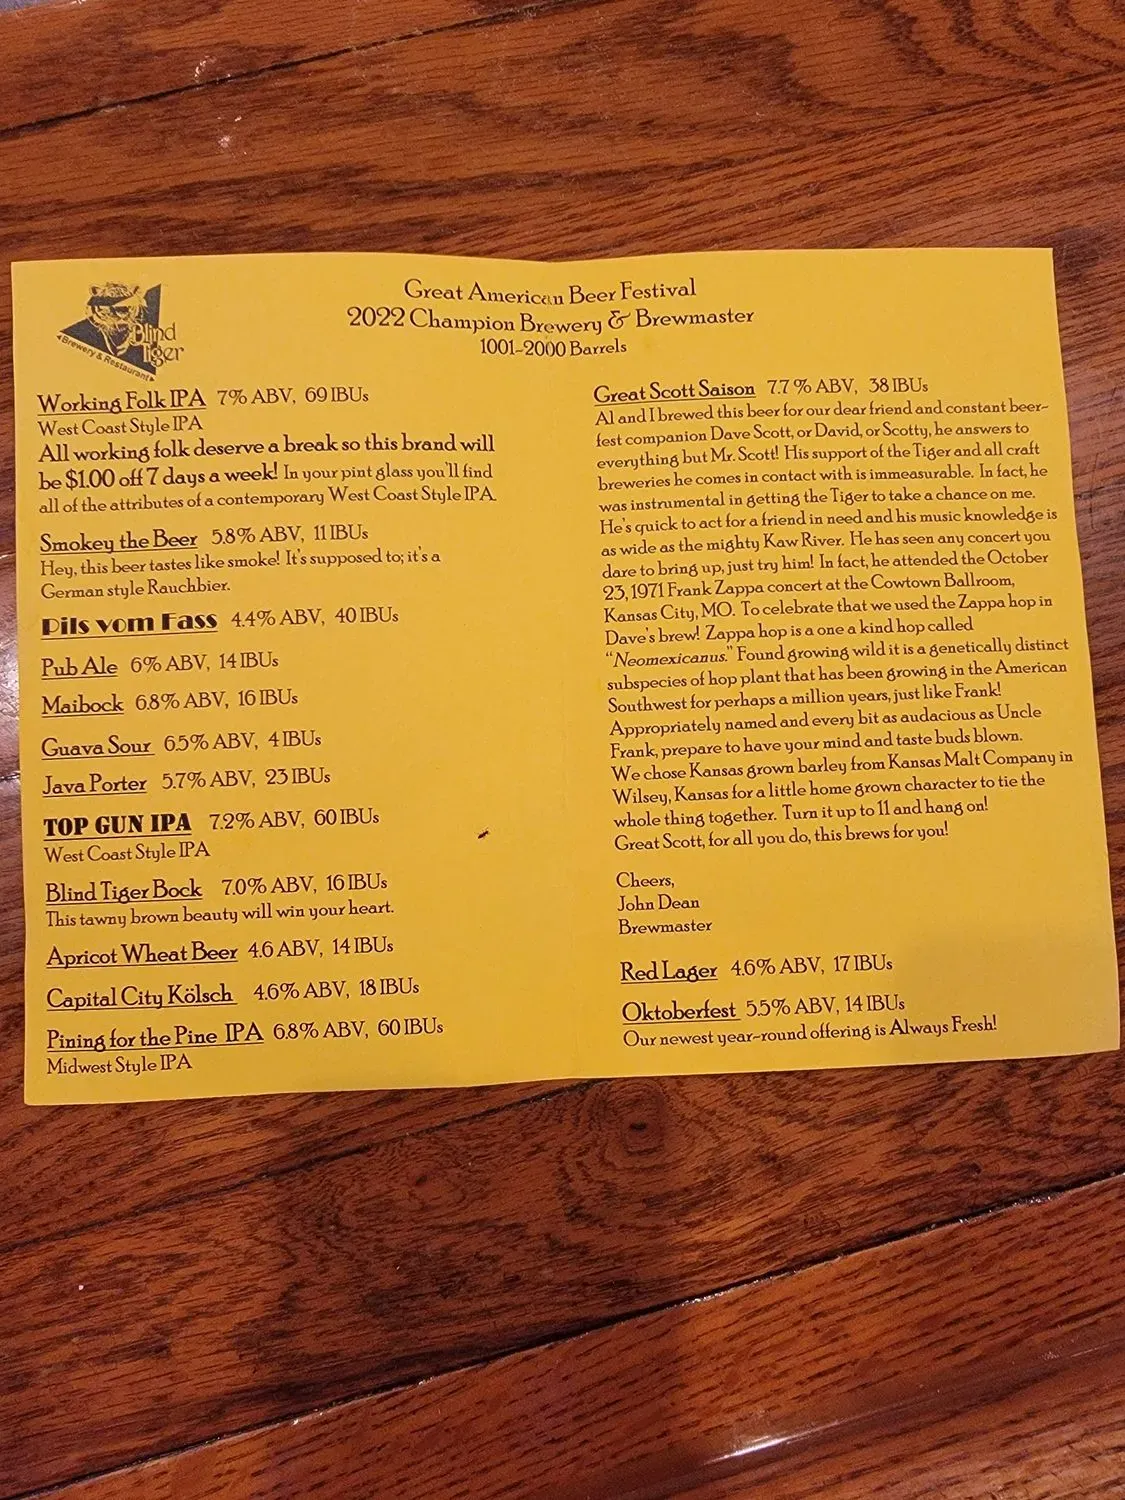 Blind
Tiger
Brewery & Restaurant
Great American Beer Festival
2022 Champion Brewery & Brewmaster
1001-2000 Barrels
Working Folk IPA 7% ABV, 69 IBUs
West Coast Style IPA
All working folk deserve a break so this brand will
be $1.00 off 7 days a week! In your pint glass you'll find
all of the attributes of a contemporary West Coast Style IPA.
Smokey the Beer 5.8% ABV, 11 IBUs
Hey, this beer tastes like smoke! It's supposed to; it's a
German style Rauchbier.
Pils vom Fass 4.4% ABV, 40 IBUs
Pub Ale 6% ABV, 14 IBUs
Maibock 6.8% ABV, 16 IBUs
Guava Sour 6.5% ABV, 4 IBUs
Java Porter 5.7% ABV, 23 IBUs
TOP GUN IPA 7.2% ABV, 60 IBUs
West Coast Style IPA
Blind Tiger Bock 7.0% ABV, 16 IBUs
This tawny brown beauty will win your heart.
Apricot Wheat Beer 4.6 ABV, 14 IBUs
Capital City Kölsch 4.6% ABV, 18 IBUs
Pining for the Pine IPA 6.8% ABV, 60 IBUs
Midwest Style IPA
Great Scott Saison 7.7 % ABV, 38 IBUs
Al and I brewed this beer for our dear friend and constant beer-
fest companion Dave Scott, or David, or Scotty, he answers to
everything but Mr. Scott! His support of the Tiger and all craft
breweries he comes in contact with is immeasurable. In fact, he
was instrumental in getting the Tiger to take a chance on me.
He's quick to act for a friend in need and his music knowledge is
as wide as the mighty Kaw River. He has seen any concert you
dare to bring up, just try him! In fact, he attended the October
23, 1971 Frank Zappa concert at the Cowtown Ballroom,
Kansas City, MO. To celebrate that we used the Zappa hop in
Dave's brew! Zappa hop is a one a kind hop called
"Neomexicanus." Found growing wild it is a genetically distinct
subspecies of hop plant that has been growing in the American
Southwest for perhaps a million years, just like Frank!
Appropriately named and every bit as audacious as Uncle
Frank, prepare to have your mind and taste buds blown.
We chose Kansas grown barley from Kansas Malt Company in
Wilsey, Kansas for a little home grown character to tie the
whole thing together. Turn it up to 11 and hang on!
Great Scott, for all you do, this brews for you!
Cheers,
John Dean
Brewmaster
Red Lager 4.6% ABV, 17 IBUs
Oktoberfest 5.5% ABV, 14 IBUs
Our newest year-round offering is Always Fresh!